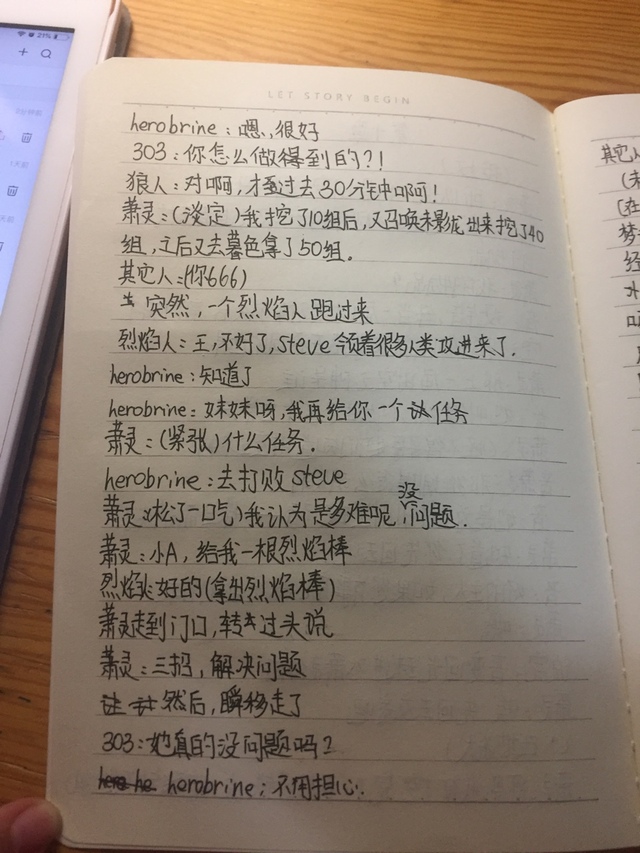 21%
LET STORY BEGIN
herobrine：嗯，很好
303：你怎么做得到的？！
狼人：对啊，才过去30分钟啊！
萧灵：(淡定)我挖了10组后，又召唤末影龙出来挖了40
组，之后又去暮色拿了50组。
其它人：(你666)
突然，一个烈焰人跑过来
烈焰人：王，不好了，steve领着很多人类攻进来了．
herobrine：知道了
herobrine：妹妹呀，我再给你一个任务
萧灵：(紧张)什么任务．
herobrine：去打败steve
萧灵：(松了一口气)我认为是多难呢，没问题．
萧灵：小A，给我一根烈焰棒
烈焰人：好的(拿出烈焰棒)
萧灵走到门口，转过头说
萧灵：三招，解决问题
然后，瞬移走了
303：她真的没问题吗？
herobrine：不用担心．
其它人
(未
(在
梦
经